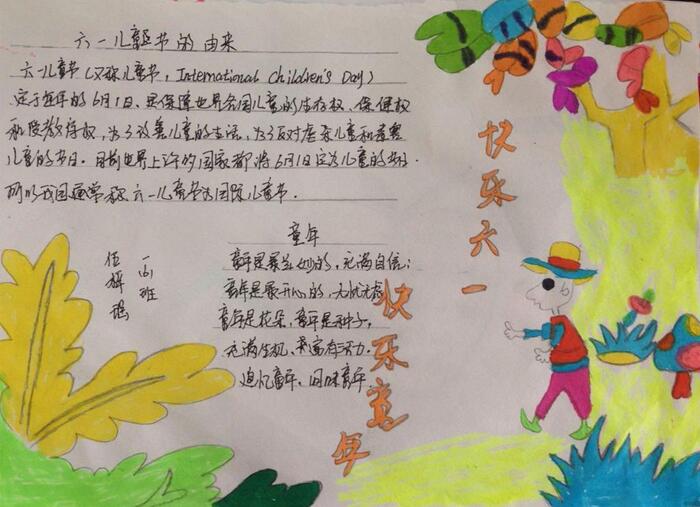 六一儿童节的由来
六一儿童节(又称儿童节,International Children's Day)
定于每年的6月1日,是保障世界各国儿童的生存权、保健权
和受教育权,为了改善儿童的生活,为了反对虐杀儿童和毒害
儿童的节日。目前世界上许的国家都将6月1日定为儿童的节日.
所以我国通常称六一儿童节为国际儿童节.
童年
童年是最美妙的,充满自信;
童年是最开心的,无忧无虑
童年是花朵,童年是种子,
充满生机、是富有活力.
追忆童年,回味童年.
一(4)班
快乐六一
快乐童年